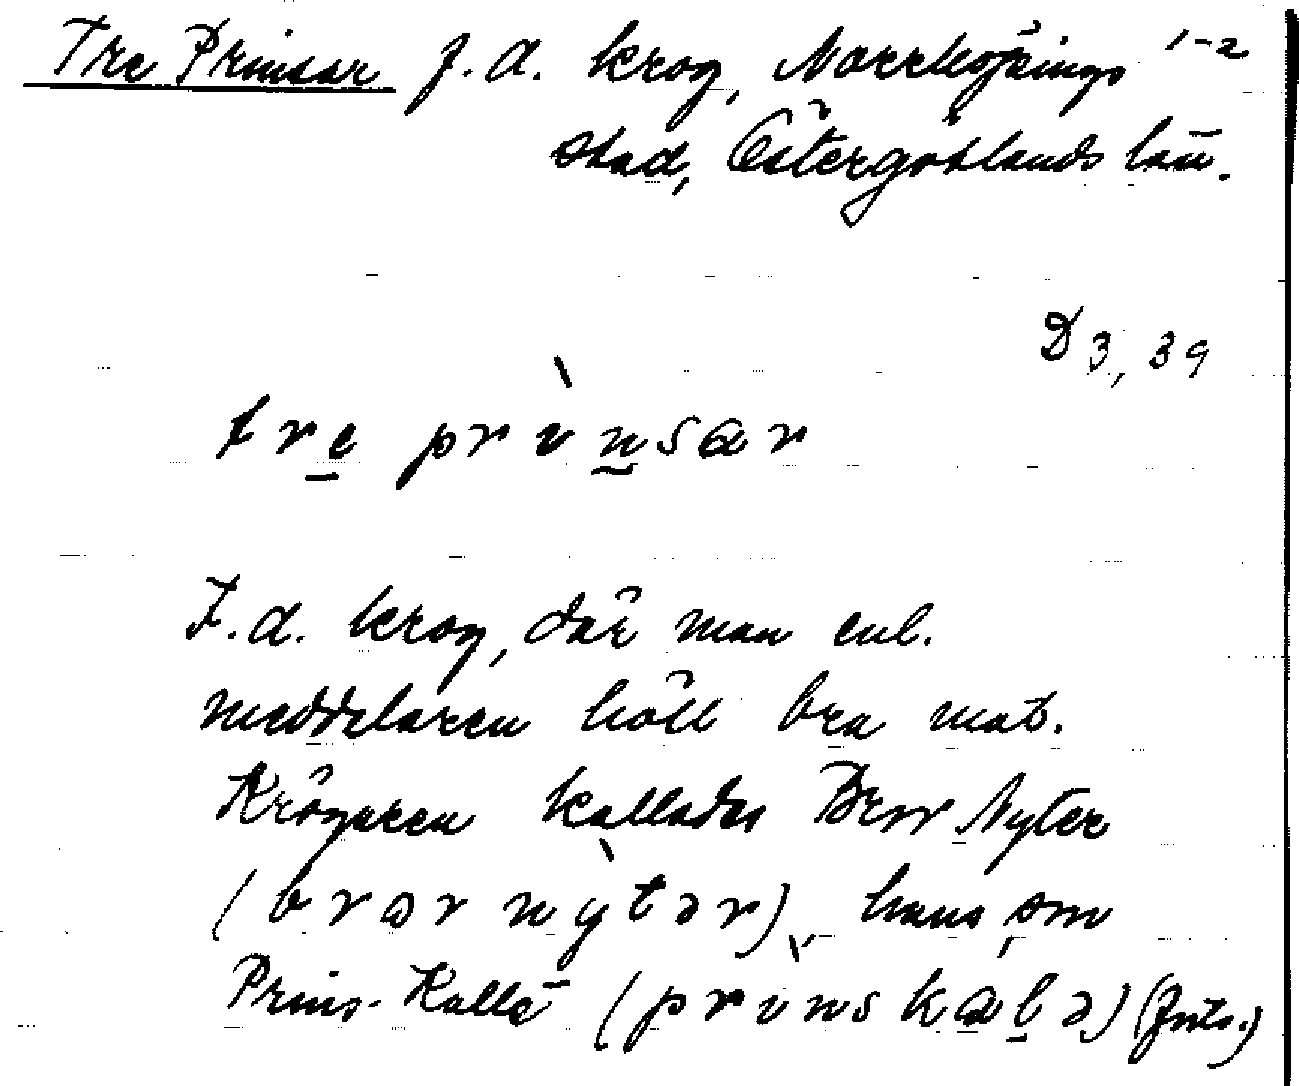 Tre Prinsar f.d. krog, Norrköpings 1-2
stad, Östergötlands län.
D 3, 39
tre prinsar
F.d. krog, där man enl.
meddelaren höll bra mat.
Krögaren kallades Bror Nyter
(bror nytər), hans son
Prins-Kalle (prinskalə) (Jnts.)